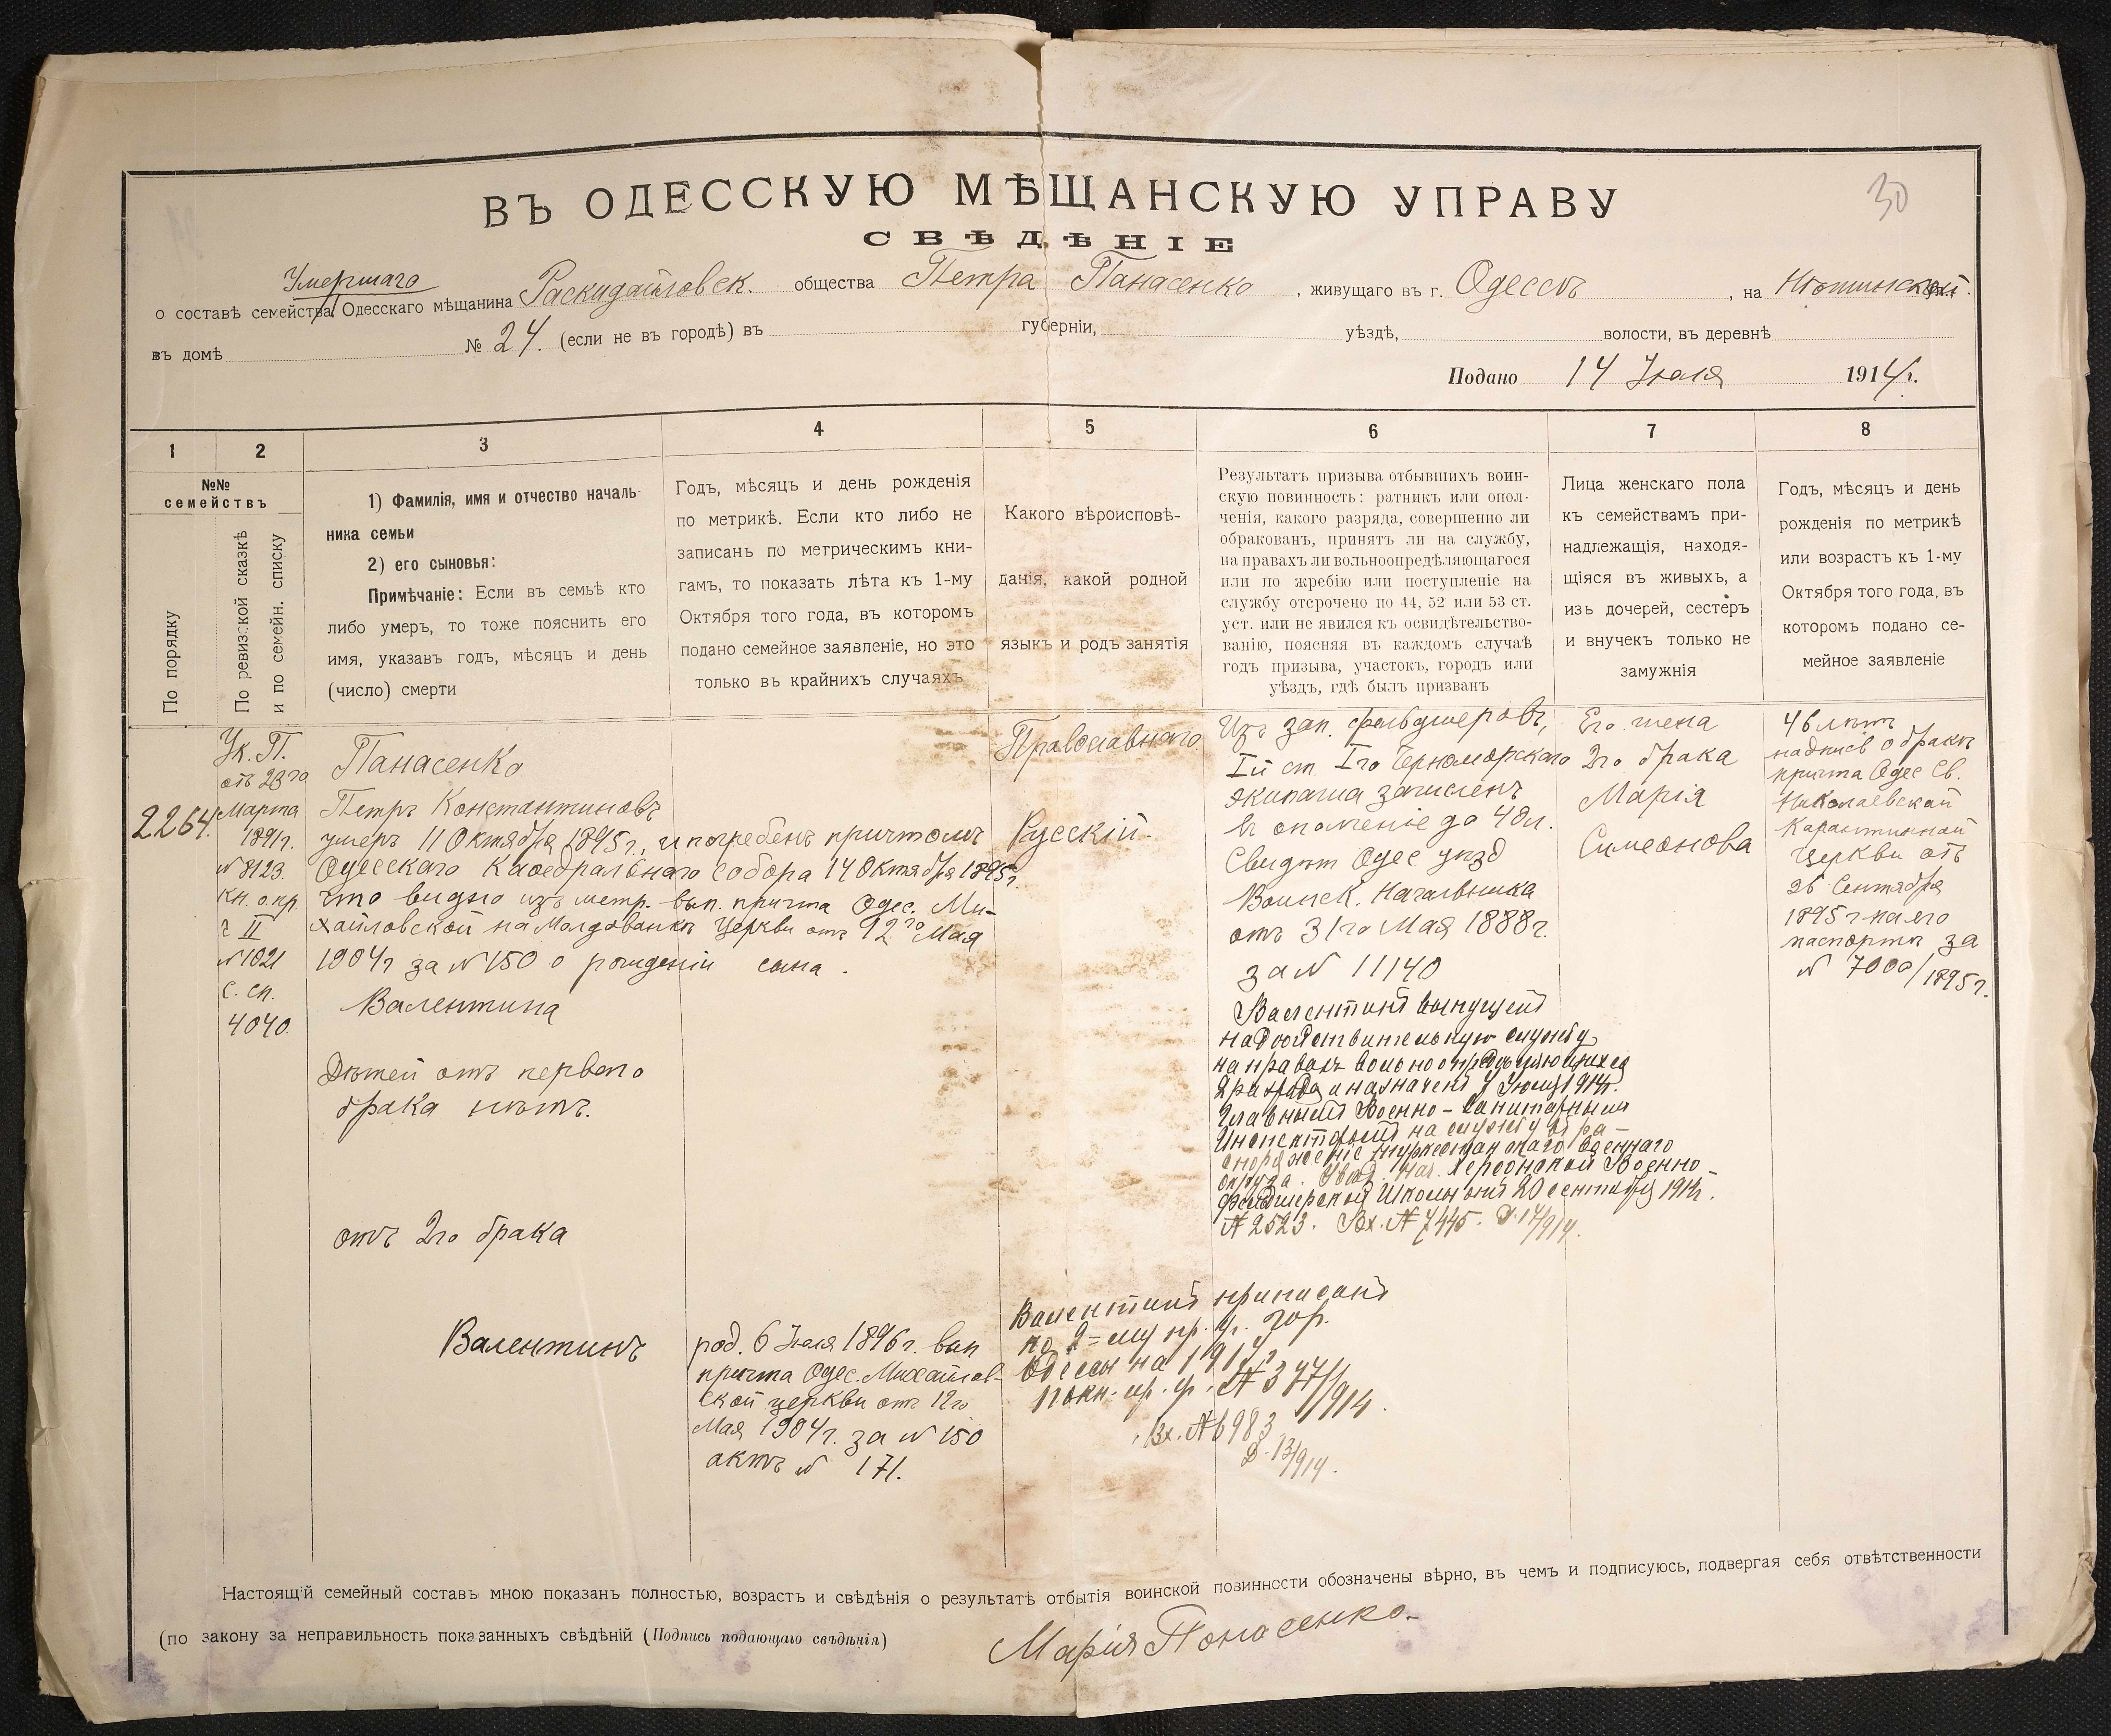 30
ВЪ ОДЕССКУЮ МѢЩАНСКУЮ УПРАВУ
СВѢДѢНІЕ
Умершаго
о составѣ семейства Одесскаго мѣщанина Раскидайловск. общества Петра Панасенко, живущаго въ г. Одессѣ, на
въ домѣ № 24. (если не въ городѣ) въ губерніи, уѣздѣ, волости, въ деревнѣ
Подано 14 Іюля 1914 г.
1 2 3 4 5 6 7 8
№№
семействъ
По порядку
По ревизской сказкѣ
и по семейн. списку
1) Фамилія, имя и отчество началь-
ника семьи
2) его сыновья:
Примѣчаніе: Если въ семьѣ кто
либо умеръ, то тоже пояснить его
имя, указавъ годъ, мѣсяцъ и день
(число) смерти
Годъ, мѣсяцъ и день рожденія
по метрикѣ. Если кто либо не
записанъ по метрическимъ кни-
гамъ, то показать лѣта къ 1-му
Октября того года, въ которомъ
подано семейное заявленіе, но это
только въ крайнихъ случаяхъ
Какого вѣроисповѣ-
данія, какой родной
языкъ и родъ занятія
Результатъ призыва отбывшихъ воин-
скую повинность: ратникъ или опол-
ченія, какого разряда, совершенно ли
обракованъ, принятъ ли на службу,
на правахъ ли вольноопредѣляющагося
или по жребію или поступленіе на
службу отсрочено по 44, 52 или 53 ст.
уст. или не явился къ освидѣтельство-
ванію, поясняя въ каждомъ случаѣ
годъ призыва, участокъ, городъ или
уѣздъ, гдѣ былъ призванъ
Лица женскаго пола
къ семействамъ при-
надлежащія, находя-
щіяся въ живыхъ, а
изъ дочерей, сестеръ
и внучекъ только не
замужнія
Годъ, мѣсяцъ и день
рожденія по метрикѣ
или возрастъ къ 1-му
Октября того года, въ
которомъ подано се-
мейное заявленіе
2264.
Ук. П.
отъ 23го
Марта
1891г.
№ 8123.
кн. о.пр.
ч II
№ 1021
с. сп.
4040.
Панасенко
Петръ Константиновъ
умеръ 11 Октября 1895 г., и погребенъ причтомъ
Одесскаго Каѳедральнаго Собора 14 Октября 1895г.
что видно изъ метр. вып. причта Одес. Ми-
хайловской на Молдаванкѣ Церкви отъ 12го Мая
1904г за № 150 о рожденіи сына.
Валентина
Дѣтей отъ перваго
брака нѣтъ.
отъ 2го брака
Валентинъ
род. 6 Іюля 1896 г. вып
причта Одес. Михайлов-
ской церкви отъ 12го
Мая 1904г. за № 150
актъ № 171.
Православнаго
Русскій.
Валентинъ приписанъ
по 2=му пр. у. гор.
Одессы на 1917 г
Вх. № 6983
Изъ зап. фельдшеровъ,
Iй ст Iго Черноморскаго
экипажа зачисленъ
въ ополченіе до 40 л.
Свидѣт Одес уѣзд
Воинск. Начальника
отъ 31го Мая 1888г.
за № 11140
Валентинъ выпущенъ
на дѣйствительную службу
на правахъ вольноопредѣляющихся
2 разряда и назначенъ 7 Іюля 1914г.
Главнымъ Военно-Санитарнымъ
Инспекторомъ на службу въ ра-
споряженіе Туркестанскаго Военнаго
округа. Увѣд. Нач. Херсонской Военно-
фельдшерской Школы отъ 20 сентября 1914г.
№ 2523. Вх. № 7445.
Его жена
2го брака
Марія
Симеонова
46 лѣтъ
надпись о бракѣ
причта Одес Св.
Николаевской
Карантинной
Церкви отъ
26 Сентября
1895 г на его
паспортѣ за
№ 7000/1895г.
Настоящій семейный составъ мною показанъ полностью, возрастъ и свѣдѣнія о результатѣ отбытія воинской повинности обозначены вѣрно, въ чемъ и подписуюсь, подвергая себя отвѣтственности
(по закону за неправильность показанныхъ свѣдѣній (Подпись подающаго свѣдѣнія)
Марія Понасенко